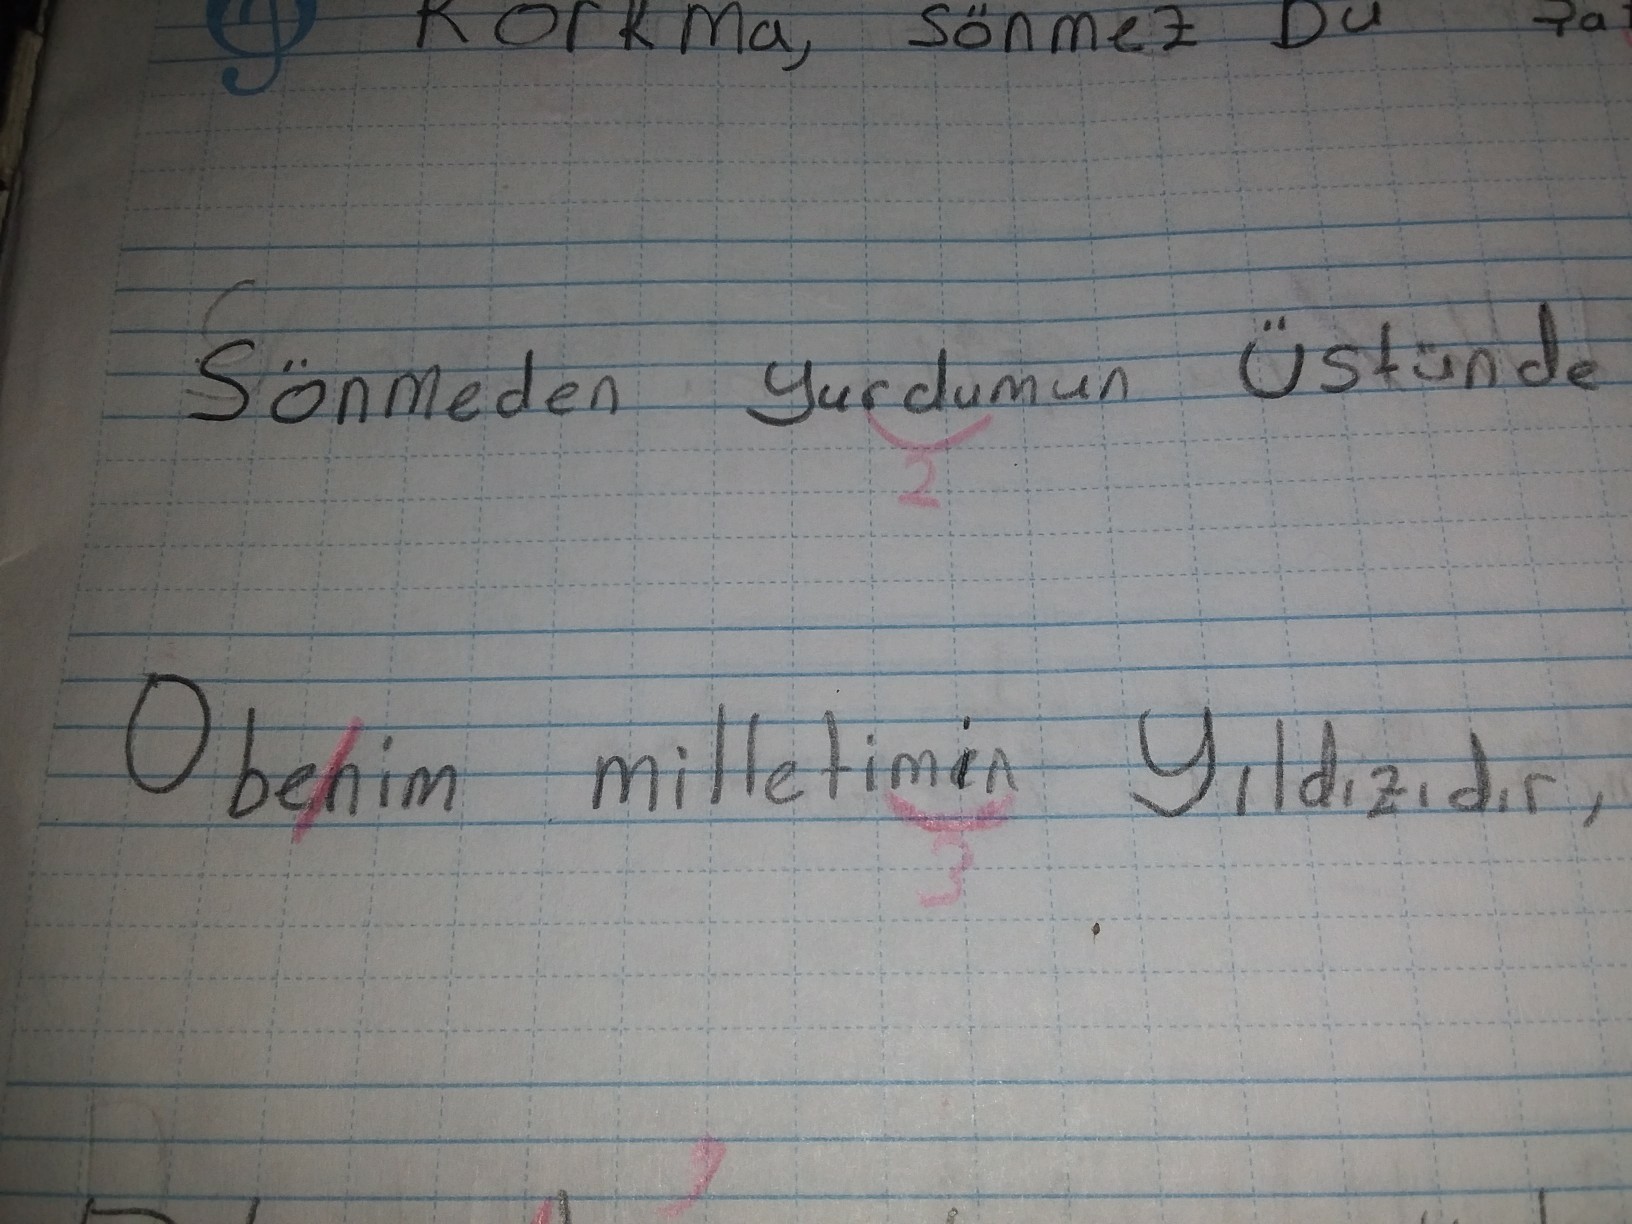 Korkma, sönmez bu
Sönmeden yurdumun üstünde
2
O benim milletimin yıldızıdır,
3